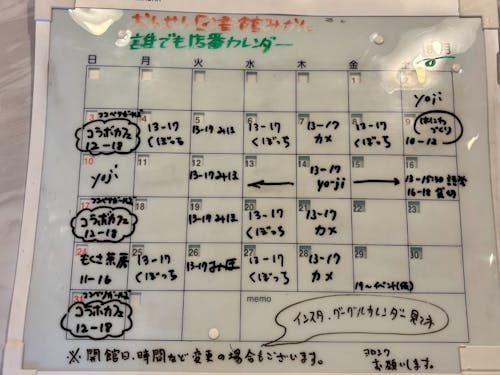 おんせん図書館みかん
誰でも店番カレンダー
8月
日 月 火 水 木 金 土
1 2
yoji
3 4 5 6 7 8 9
コラボカフェ
12-18
13-17
くぼっち
13-17 みほ
13-17
くぼっち
13-17
カメ
13-17
くぼっち
はにわ
づくり
10-12
10 11 12 13 14 15 16
yoji
13-17 みほ
13-17
yo-ji
13-15:30
16-18 貸切
17 18 19 20 21 22 23
コラボカフェ
12-18
13-17 みほ
13-17
くぼっち
13-17
カメ
24 25 26 27 28 29 30
もぐさ茶房
11-16
13-17
くぼっち
13-17
13-17
くぼっち
13-17
カメ
19~イベント(仮)
31
コラボカフェ
12-18
memo
インスタ・グーグルカレンダー見てネ
※開館日、時間など変更の場合もございます。
ヨロシク
お願いします。